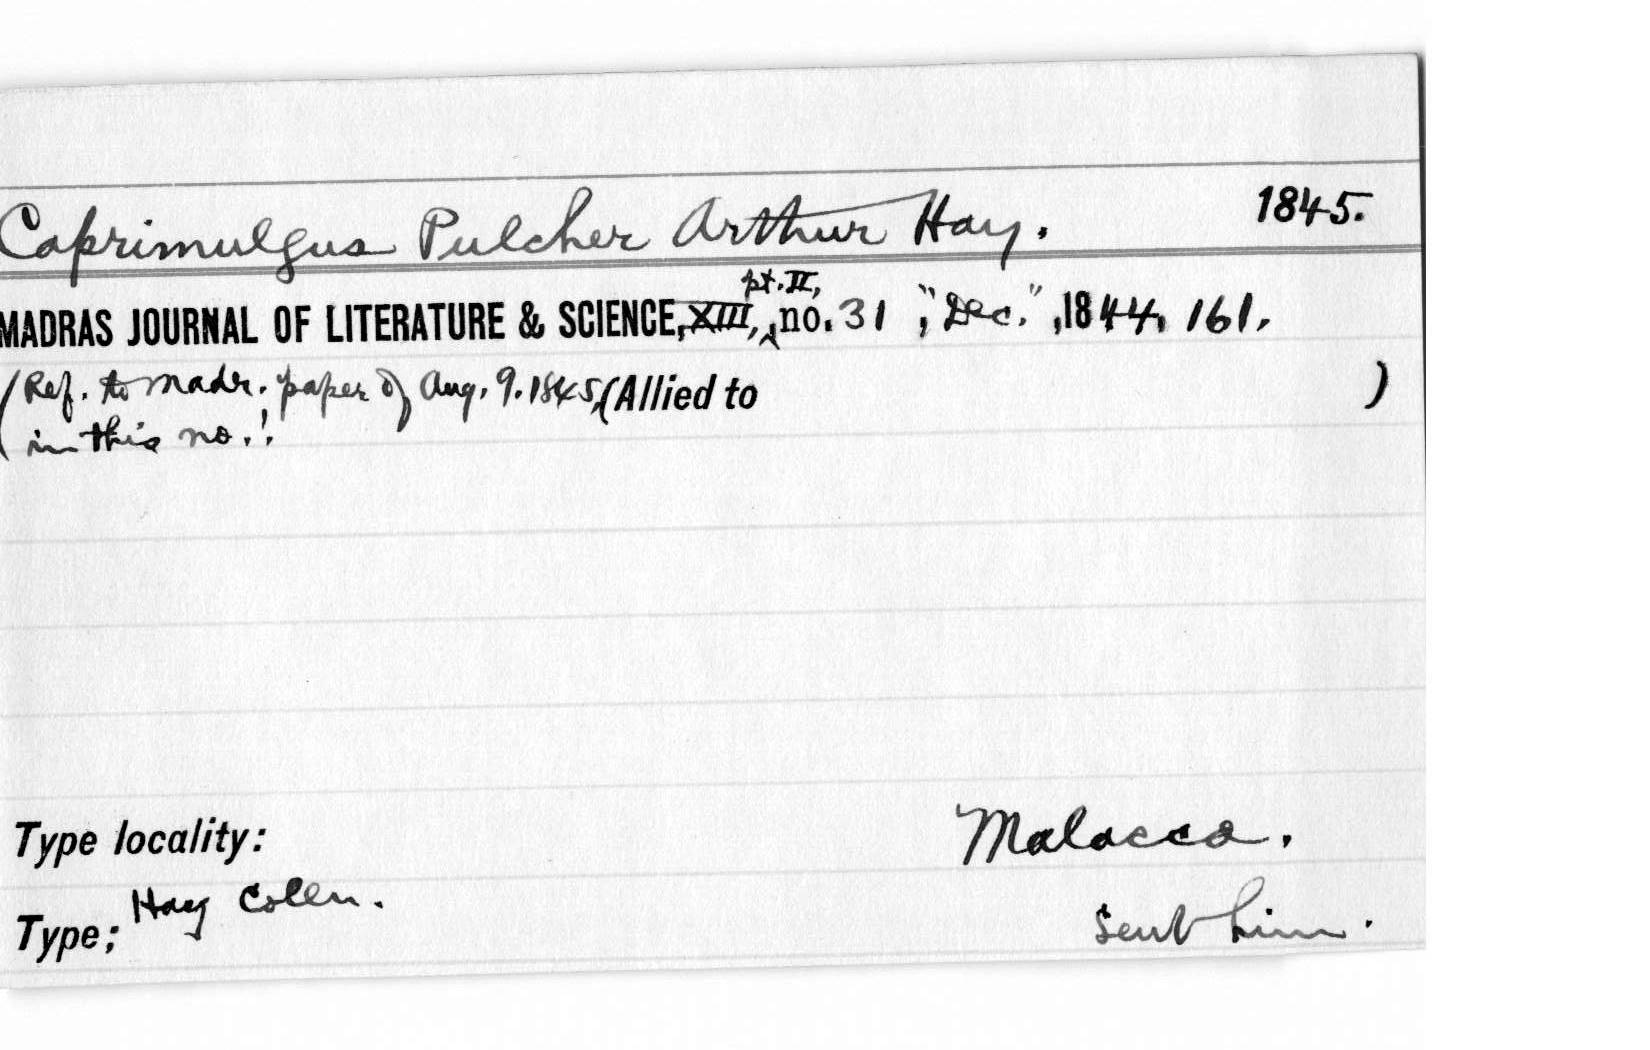 Caprimulgus Pulcher Arthur Hay. 1845.
pt. II,
MADRAS JOURNAL OF LITERATURE & SCIENCE, XIII, no. 31, "Dec.", 1844, 161.
(Ref. to Madr. paper of Aug. 9. 1845, (Allied to )
in this no.!
Type locality: Malacca.
Hay Colln.
Type; Sent him.